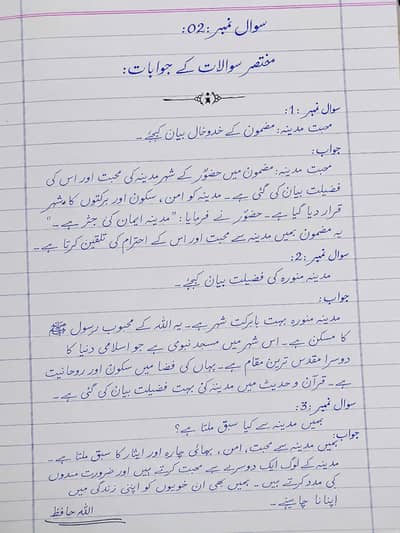 سوال نمبر :02:
مختصر سوالات کے جوابات:
سوال نمبر :1:
محبت مدینہ: مضمون کے خدوخال بیان کیجئے۔
جواب:
محبت مدینہ: مضمون میں حضورؐ کے شہر مدینہ کی محبت اور اس کی
فضیلت بیان کی گئی ہے۔ مدینہ کو امن، سکون اور برکتوں کا مشہر
قرار دیا گیا ہے۔ حضورؐ نے فرمایا: "مدینہ ایمان کی جڑ ہے۔"
یہ مضمون ہمیں مدینہ سے محبت اور اس کے احترام کی تلقین کرتا ہے۔
سوال نمبر :2:
مدینہ منورہ کی فضیلت بیان کیجئے۔
جواب:
مدینہ منورہ بہت بابرکت شہر ہے۔ یہ اللہ کے محبوب رسول ﷺ
کا مسکن ہے۔ اس شہر میں مسجد نبوی ہے جو اسلامی دنیا کا
دوسرا مقدس ترین مقام ہے۔ یہاں کی فضا میں سکون اور روحانیت
ہے۔ قرآن و حدیث میں مدینہ کی بہت فضیلت بیان کی گئی ہے۔
سوال نمبر :3:
ہمیں مدینہ سے کیا سبق ملتا ہے؟
جواب:
ہمیں مدینہ سے محبت، امن، بھائی چارہ اور ایثار کا سبق ملتا ہے۔
مدینہ کے لوگ ایک دوسرے سے محبت کرتے ہیں اور ضرورت مندوں
کی مدد کرتے ہیں۔ ہمیں بھی ان خوبیوں کو اپنی زندگی میں
اپنانا چاہیئے۔
اللہ حافظ